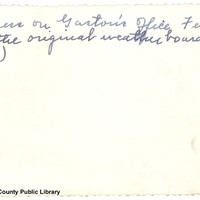 on Gaston's Office, Fe
the original weather board
)
County Public Library